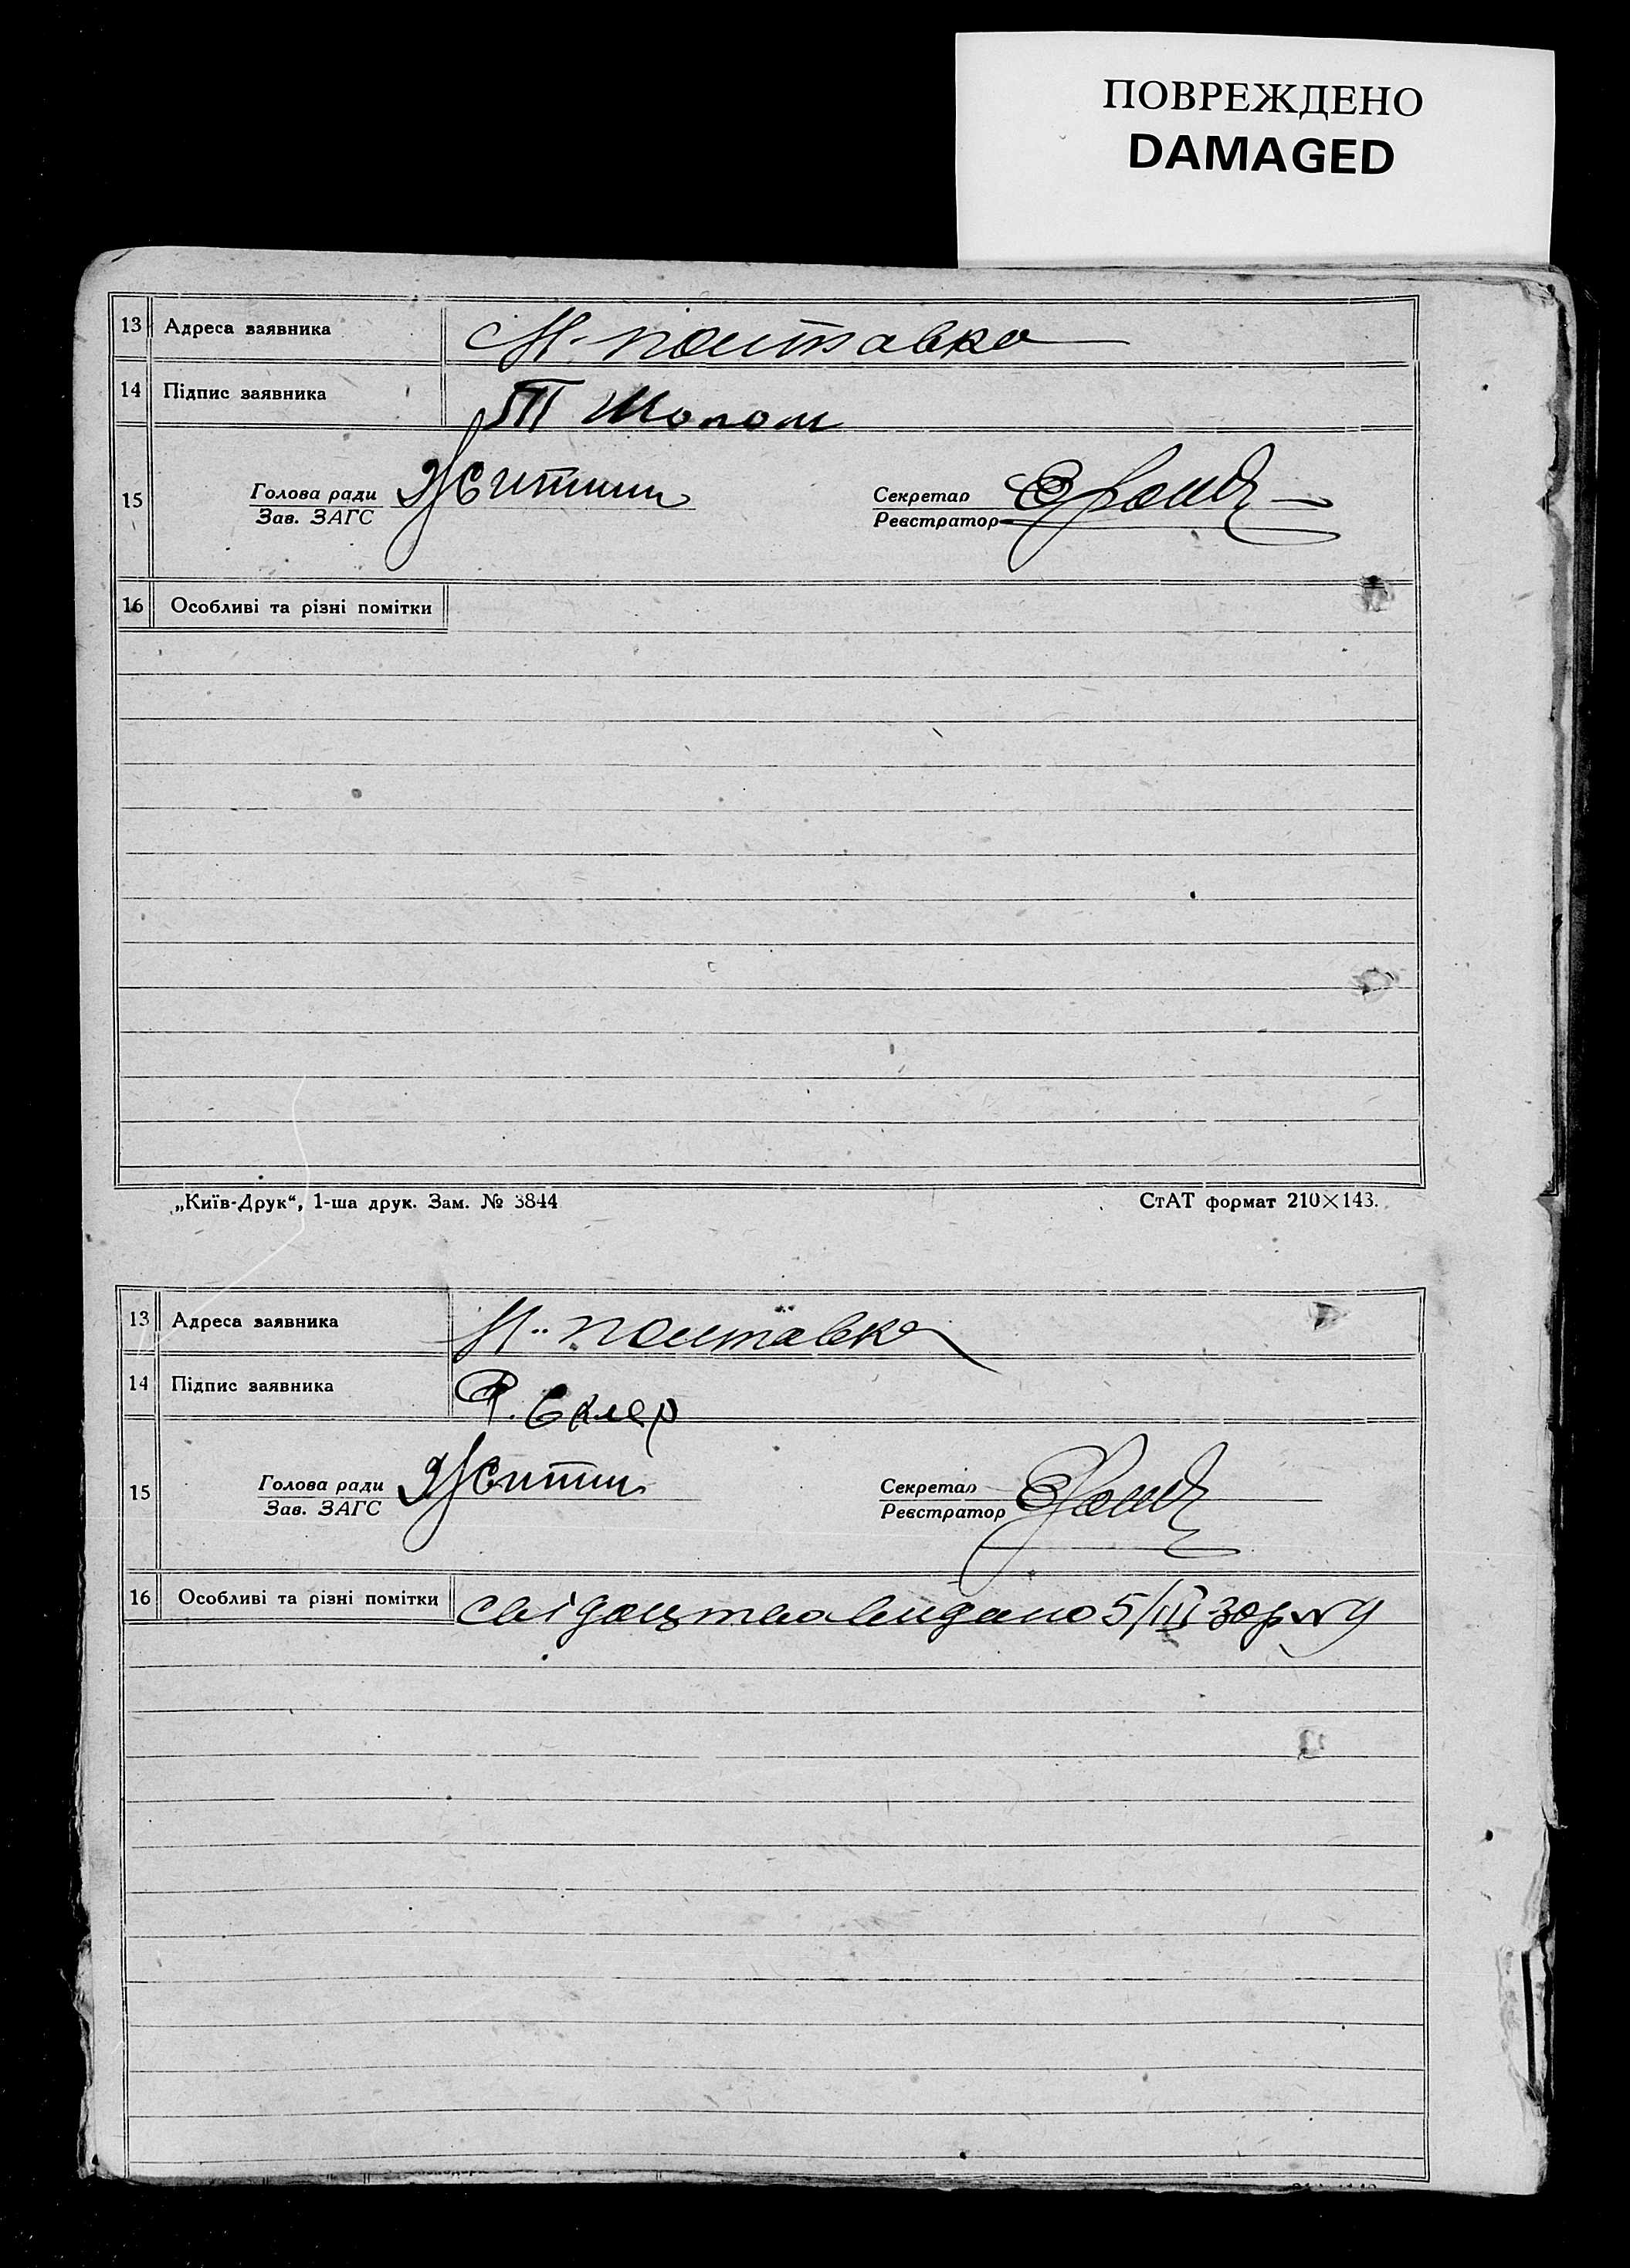 ПОВРЕЖДЕНО
DAMAGED
13 Адреса заявника М. Полтавка
14 Підпис заявника Т Шопот
15 Голова ради Житник Секретар
Зав. ЗАГС Реєстратор
16 Особливі та різні помітки
„Київ-Друк“, 1-ша друк. Зам. № 3844
СтАТ формат 210×143.
13 Адреса заявника М. Полтавка
14 Підпис заявника Р. Скляр
15 Голова ради Секретар
Зав. ЗАГС Реєстратор
16 Особливі та різні помітки свідоцтво видано 5/III 30р № 9